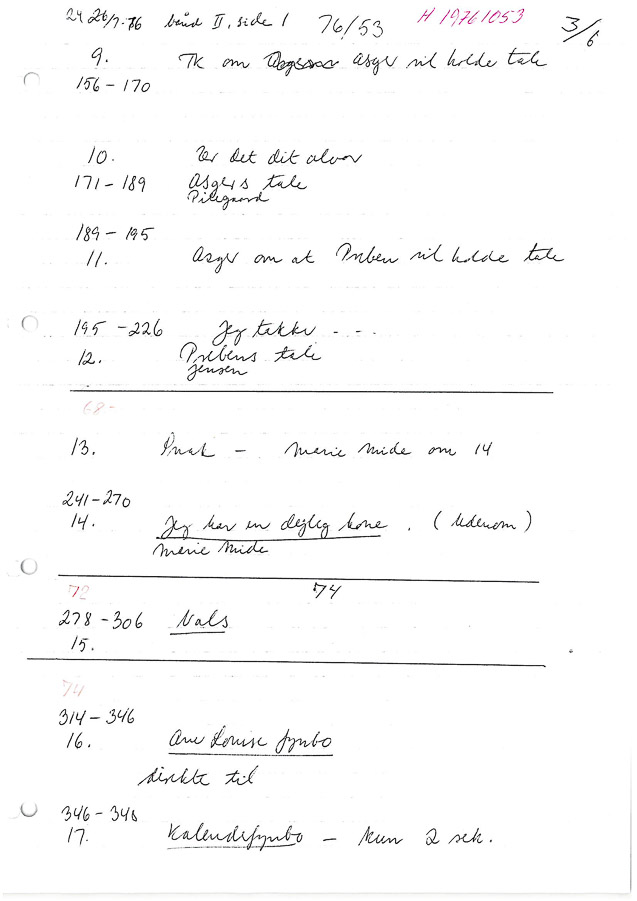 24 26/7-76 bånd II, side 1 76/53 H 19761053 3/6
9. TK om Asger vil holde tale
156-170
10. Er det dit alvor
171-189 Asgers tale
Pilegaard
189-195
11. Asger om at Preben vil holde tale
195-226 Jeg takker - - -
12. Prebens tale
Jensen
68-
13. Snak - Merie Mide om 14
241-270
14. Jeg har en dejlig kone. (Udenom)
Merie Mide
72 74
278-306 Vals
15.
74
314-346
16. Ane Louise fynbo
direkte til
346-348
17. Kalendsfynbo - kun 2 sek.